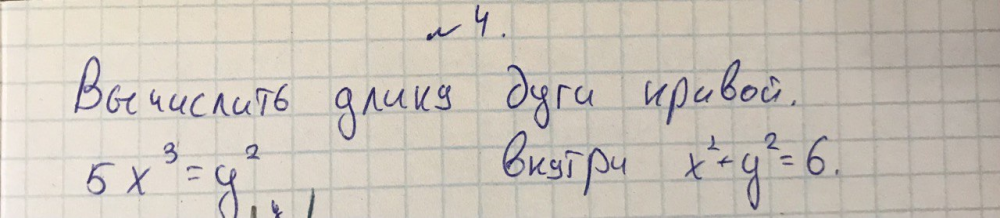 № 4.
Вычислить длину дуги кривой.
5x³ = y² внутри x² + y² = 6.